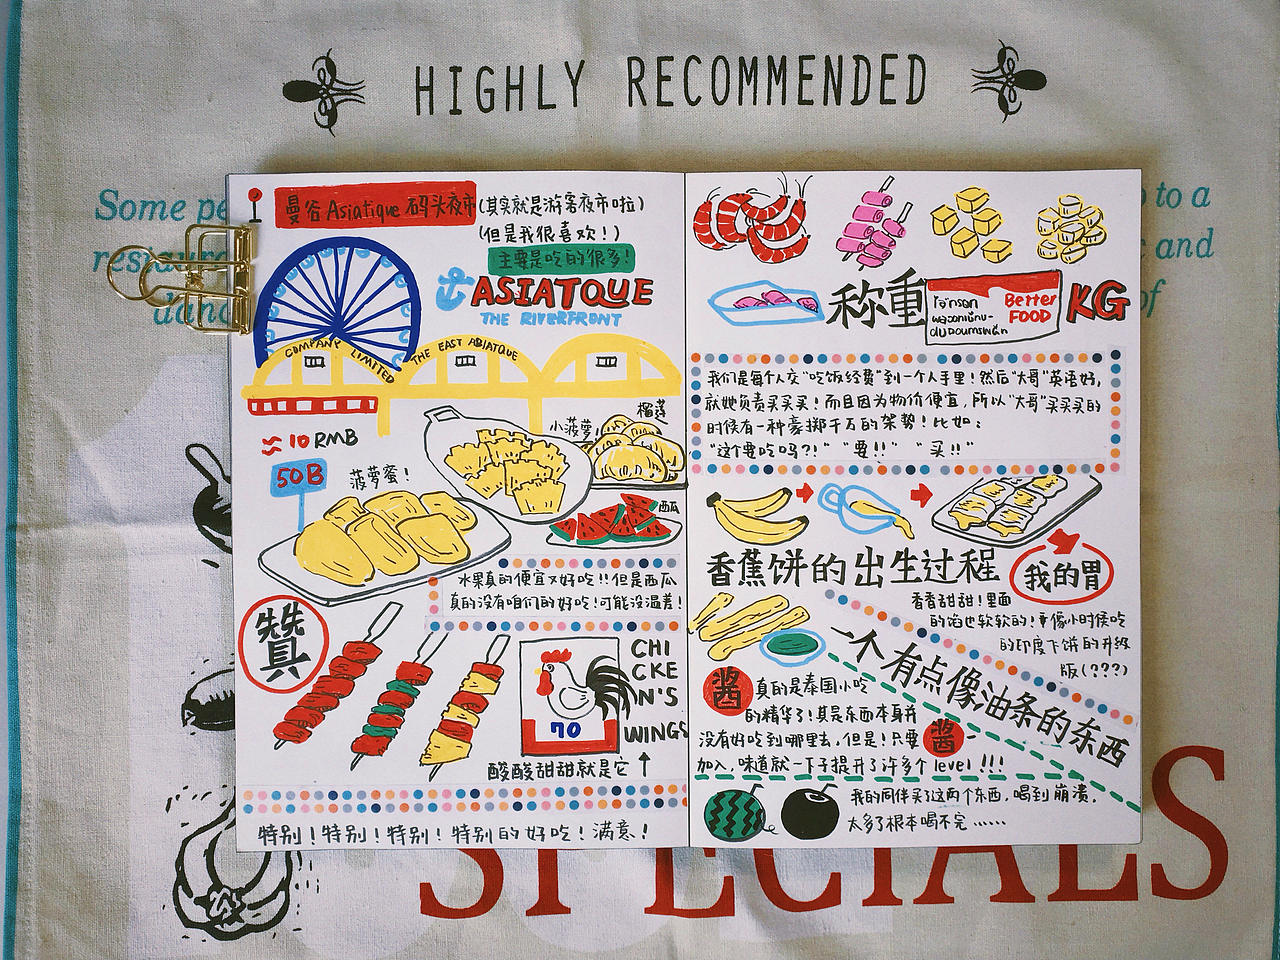 HIGHLY RECOMMENDED
Some pe
to a
restaura
and
danc
of
曼谷 Asiatique 码头夜市
(其实就是游客夜市啦)
(但是我很喜欢!)
主要是吃的很多!
ASIATQUE
THE RIVERFRONT
COMPANY LIMITED
THE EAST ASIATQUE
≈10RMB
50B
菠萝蜜!
小菠萝!
榴莲
西瓜
水果真的便宜又好吃!!但是西瓜
真的没有咱们的好吃!可能没温差!
赞
CHI
CKE
N'S
WINGS
70
酸酸甜甜就是它↑
特别!特别!特别!特别的好吃!满意!
称重
Better
FOOD
KG
我们是每个人交"吃饭经费"到一个人手里!然后"大哥"英语好,
就她负责买买买!而且因为物价便宜,所以"大哥"买买买的
时候有一种豪掷千万的架势!比如:
"这个要吃吗?!" "要!!" "买!!"
香蕉饼的出生过程
我的胃
香香甜甜!里面
的馅也软软的!更像小时侯吃
的印度飞饼的升级
版(???)
一个有点像油条的东西
酱
真的是泰国小吃
的精华了!其是东西本身并
没有好吃到哪里去,但是!只要
酱
加入,味道就一下子提升了许多个level!!!
我的同伴买了这两个东西,喝到崩溃,
太多了根本喝不完……
SPECIALS